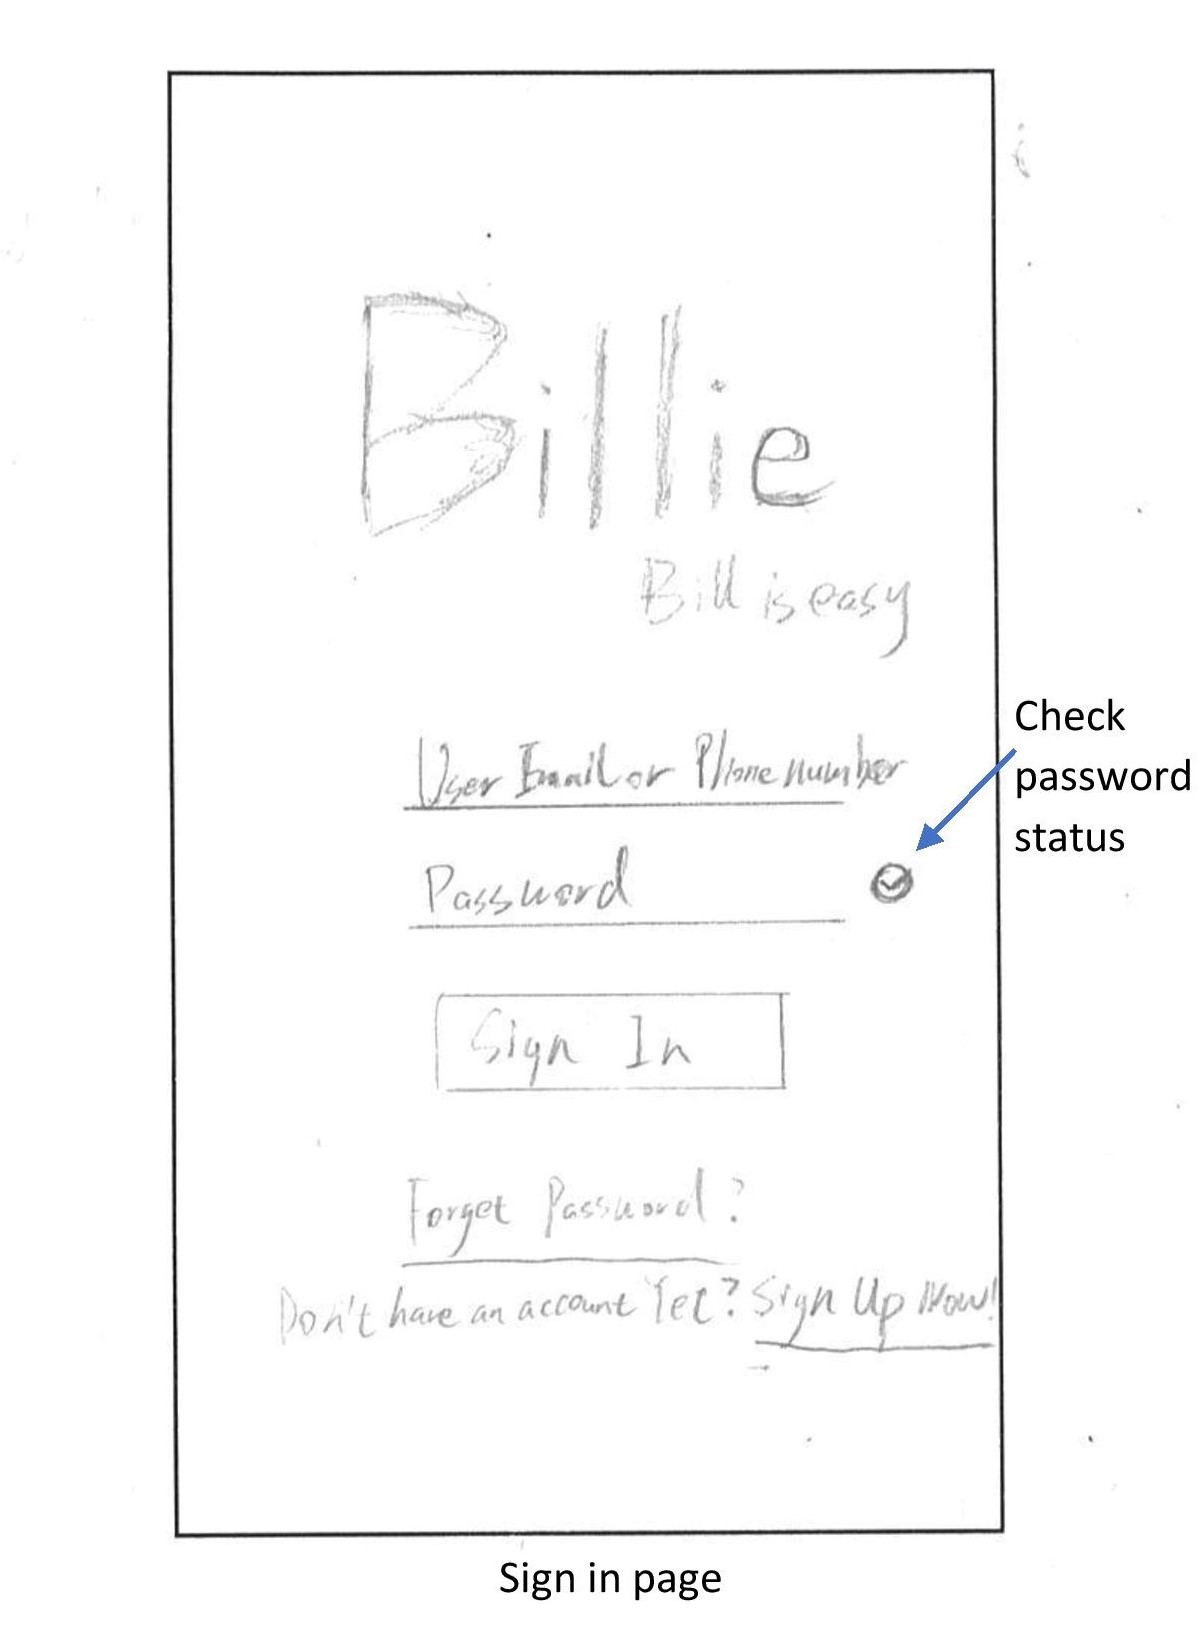 Billie
Bill is easy
User Email or Phone number
Check
password
status
Password
Sign In
Forget Password?
Don't have an account Yet? Sign Up Now!
Sign in page